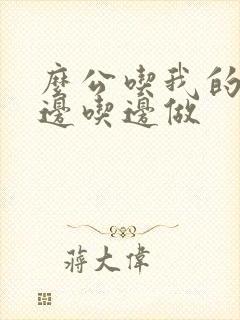 麼公喫我的
邊喫邊做
蔣大偉